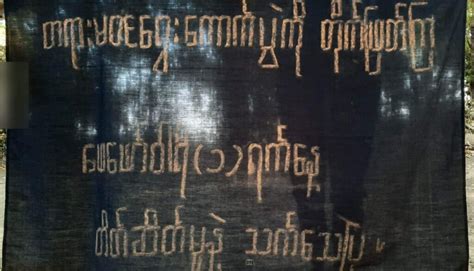 တရားမဝင်ရွေးကောက်ပွဲကို တိုက်ဖျက်ကြ
ဖေဖော်ဝါရီ(၁)ရက်နေ့
တိတ်ဆိတ်မှုနဲ့ သက်သေပြ